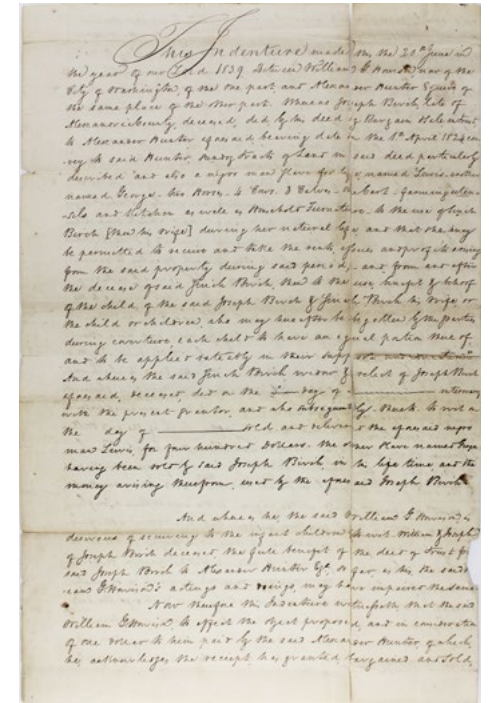 This Indenture made this the 20th June in
the year of our Lord 1839. Between William G Howison now of the
City of Washington, of the one part, and Alexander Hunter Esquire of
the same place of the other part. Whereas Joseph Birch, late of
Alexandria County, deceased, did by his deed of Bargain
to Alexander Hunter aforesaid bearing date on the 8th April 182
to said Hunter, tracts of Land in said deed particularly
described and also a negro man slave for life, named Lewis, another
named George - two Horses - 4 Cows. 3 Calves - farming uten
-sils and Kitchen as well as Household Furniture - to the use of
Birch [then his wife] during her natural life, and that she may
be permitted to secure and take the rents, issues and profits coming
from the said property during said period, and from and after
the decease of said Birch, then to the use, benefit & behoof
of the child, of the said Joseph Birch & Birch his wife, or
the child or children, who may hereafter be begotten by the parties
during coverture each child to have an equal portion thereof
and to be applied rateably in their support
And whereas the said Birch widow & relict of Joseph Birch
aforesaid, deceased, did on the day of
with the present grantor, and who subsequently to wit on
the day of sold and the aforesaid negro
man Lewis, for four hundred Dollars. the other slave named George
having been sold by said Joseph Birch in his life time and the
money arising therefrom, used by the aforesaid Joseph Birch
And whereas he, the said William G Howison is
desirous of securing to the infant children to wit. William & Joseph
of Joseph Birch deceased, the full benefit of the deed of trust from
said Joseph Birch to Alexander Hunter Esqr. so far, as his, the said
G Howison's actings and doings, may have impaired the same
Now therefore this Indenture witnesseth that the said
William G Howison to effect the object proposed, and in consideration
of one dollar to him paid by the said Alexander Hunter, of which,
he, acknowledges the receipt, has granted, bargained and sold,